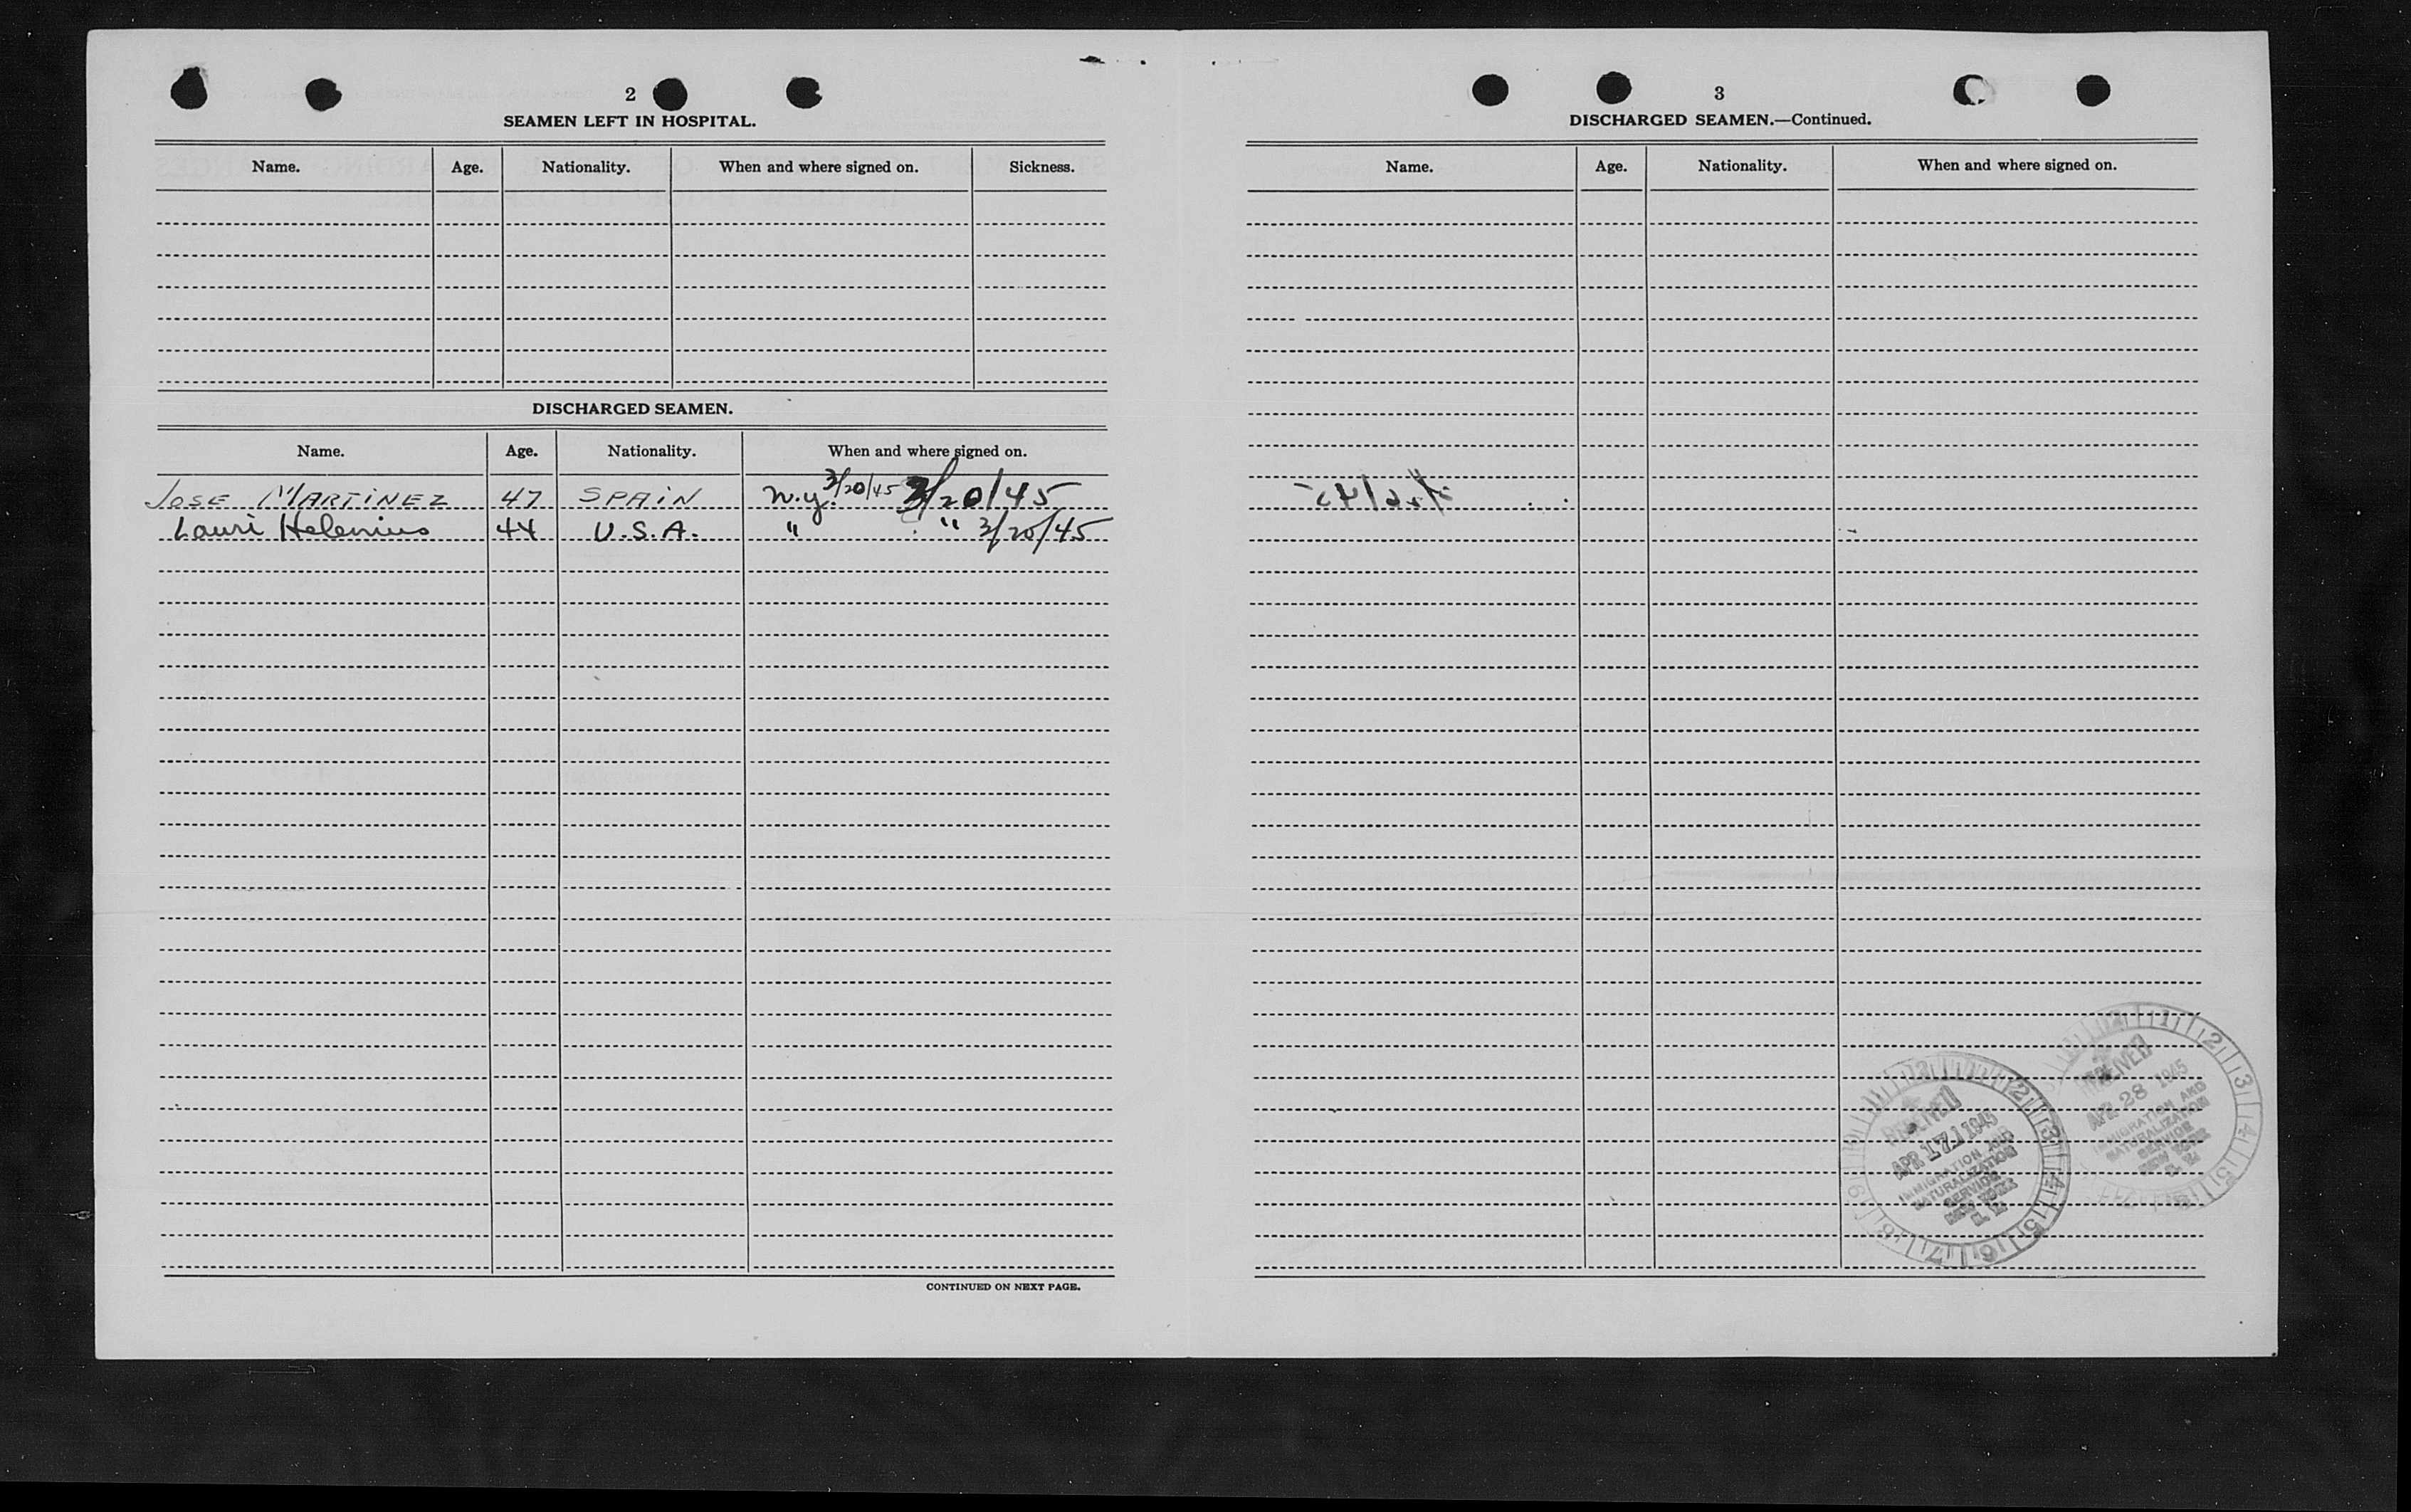 2
SEAMEN LEFT IN HOSPITAL.
Name. Age. Nationality. When and where signed on. Sickness.
DISCHARGED SEAMEN.
Name. Age. Nationality. When and where signed on.
JOSE MARTINEZ 47 SPAIN N.Y. 3/20/45 3/20/45
Lauri Helenius 44 U.S.A. " " 3/20/45
CONTINUED ON NEXT PAGE.
3
DISCHARGED SEAMEN.—Continued.
Name. Age. Nationality. When and where signed on.
RECEIVED
APR 17 1945
IMMIGRATION AND
NATURALIZATION
SERVICE
NEW YORK
RECEIVED
APR 28 1945
IMMIGRATION AND
NATURALIZATION
SERVICE
NEW YORK